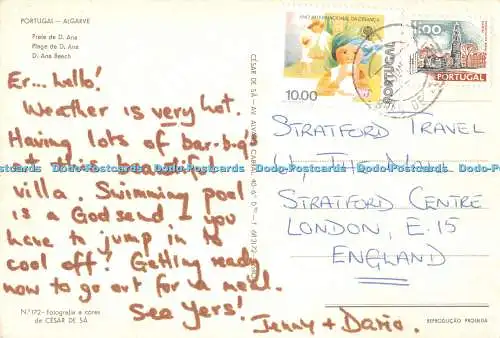 PORTUGAL — ALGARVE
Praia de D. Ana
Plage de D. Ana
D. Ana Beach
Er... hello!
Weather is very hot.
Having lots of bar-b-q's
at this beautiful
villa. Swimming pool
is a Godsend – you
have to jump in to
cool off! Getting ready
now to go out for a meal.
See yers!
Jenny + Dario.
N.º 172 - Fotografia a cores
de CÉSAR DE SÁ
CÉSAR DE SÁ — AV. ALVARES CABRAL
ANO INTERNACIONAL DA CRIANÇA
10.00
PORTUGAL
1$00
PORTUGAL
STRATFORD TRAVEL
THE MALL
STRATFORD CENTRE
LONDON, E.15
ENGLAND
REPRODUÇÃO PROIBIDA
Dodo-Postcards Dodo-Postcards Dodo-Postcards Dodo-Postcards Dodo-Postcards